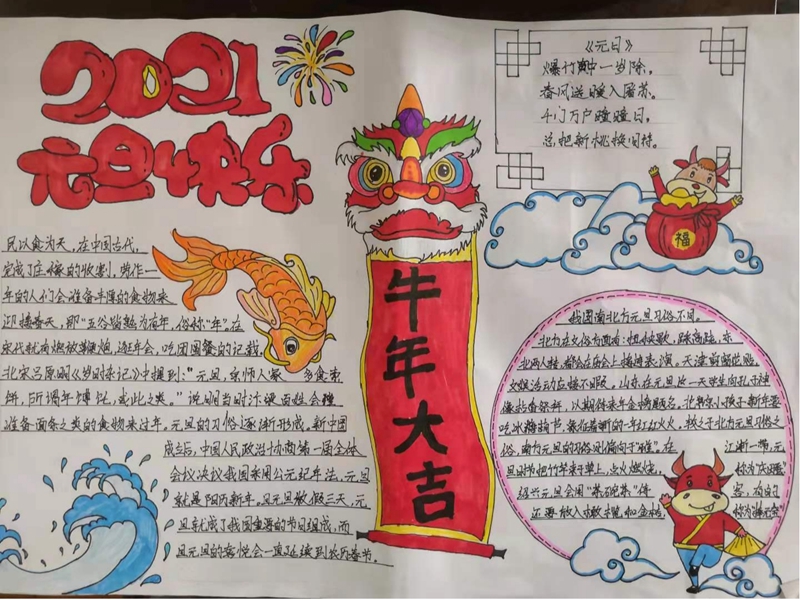 2021
元旦快乐
《元日》
爆竹声中一岁除，
春风送暖入屠苏。
千门万户曈曈日，
总把新桃换旧符。
福
民以食为天，在中国古代，
完成了庄稼的收割，劳作一
年的人们会准备丰厚的食物来
迎接春天，那“五谷皆熟为有年，俗称“年”。在
宋代就有燃放鞭炮，逛年会，吃团圆餐的记载
北宋吕原明《岁时杂记》中提到：“元旦，京师人家 多食索
饼，所谓年馎饦，或此之类。”说明当时汴梁百姓会
准备面条之类的食物来过年。元旦的习俗逐渐形成，新中国
成立后，中国人民政治协商第一届全体
会议决议我国采用公元纪年法，元旦
就是阳历新年。且元旦放假三天，元
旦就成了我国重要的节日组成，而
且元旦的喜悦会一直延续到农历春节。
牛年大吉
我国南北方元旦习俗不同。
北方在文俗方面有：扭秧歌，踩高跷，东
北两人转，都会在庙会上
文娱活动应接不暇。山东在元旦这一天学生向孔子神
像，以期待来年金榜题名。北京小孩子新年要
吃冰糖葫芦，象征着新的一年红红火火。较之于北方元旦习俗之
俗，南方元旦的习俗则偏向于“雅”。在 江浙一带，元
旦日时把竹竿夹于掌上，点火燃烧， 称为“庆
绍兴元旦会用“茶”待 客，有的
还要放入橄榄和金桔， 称为